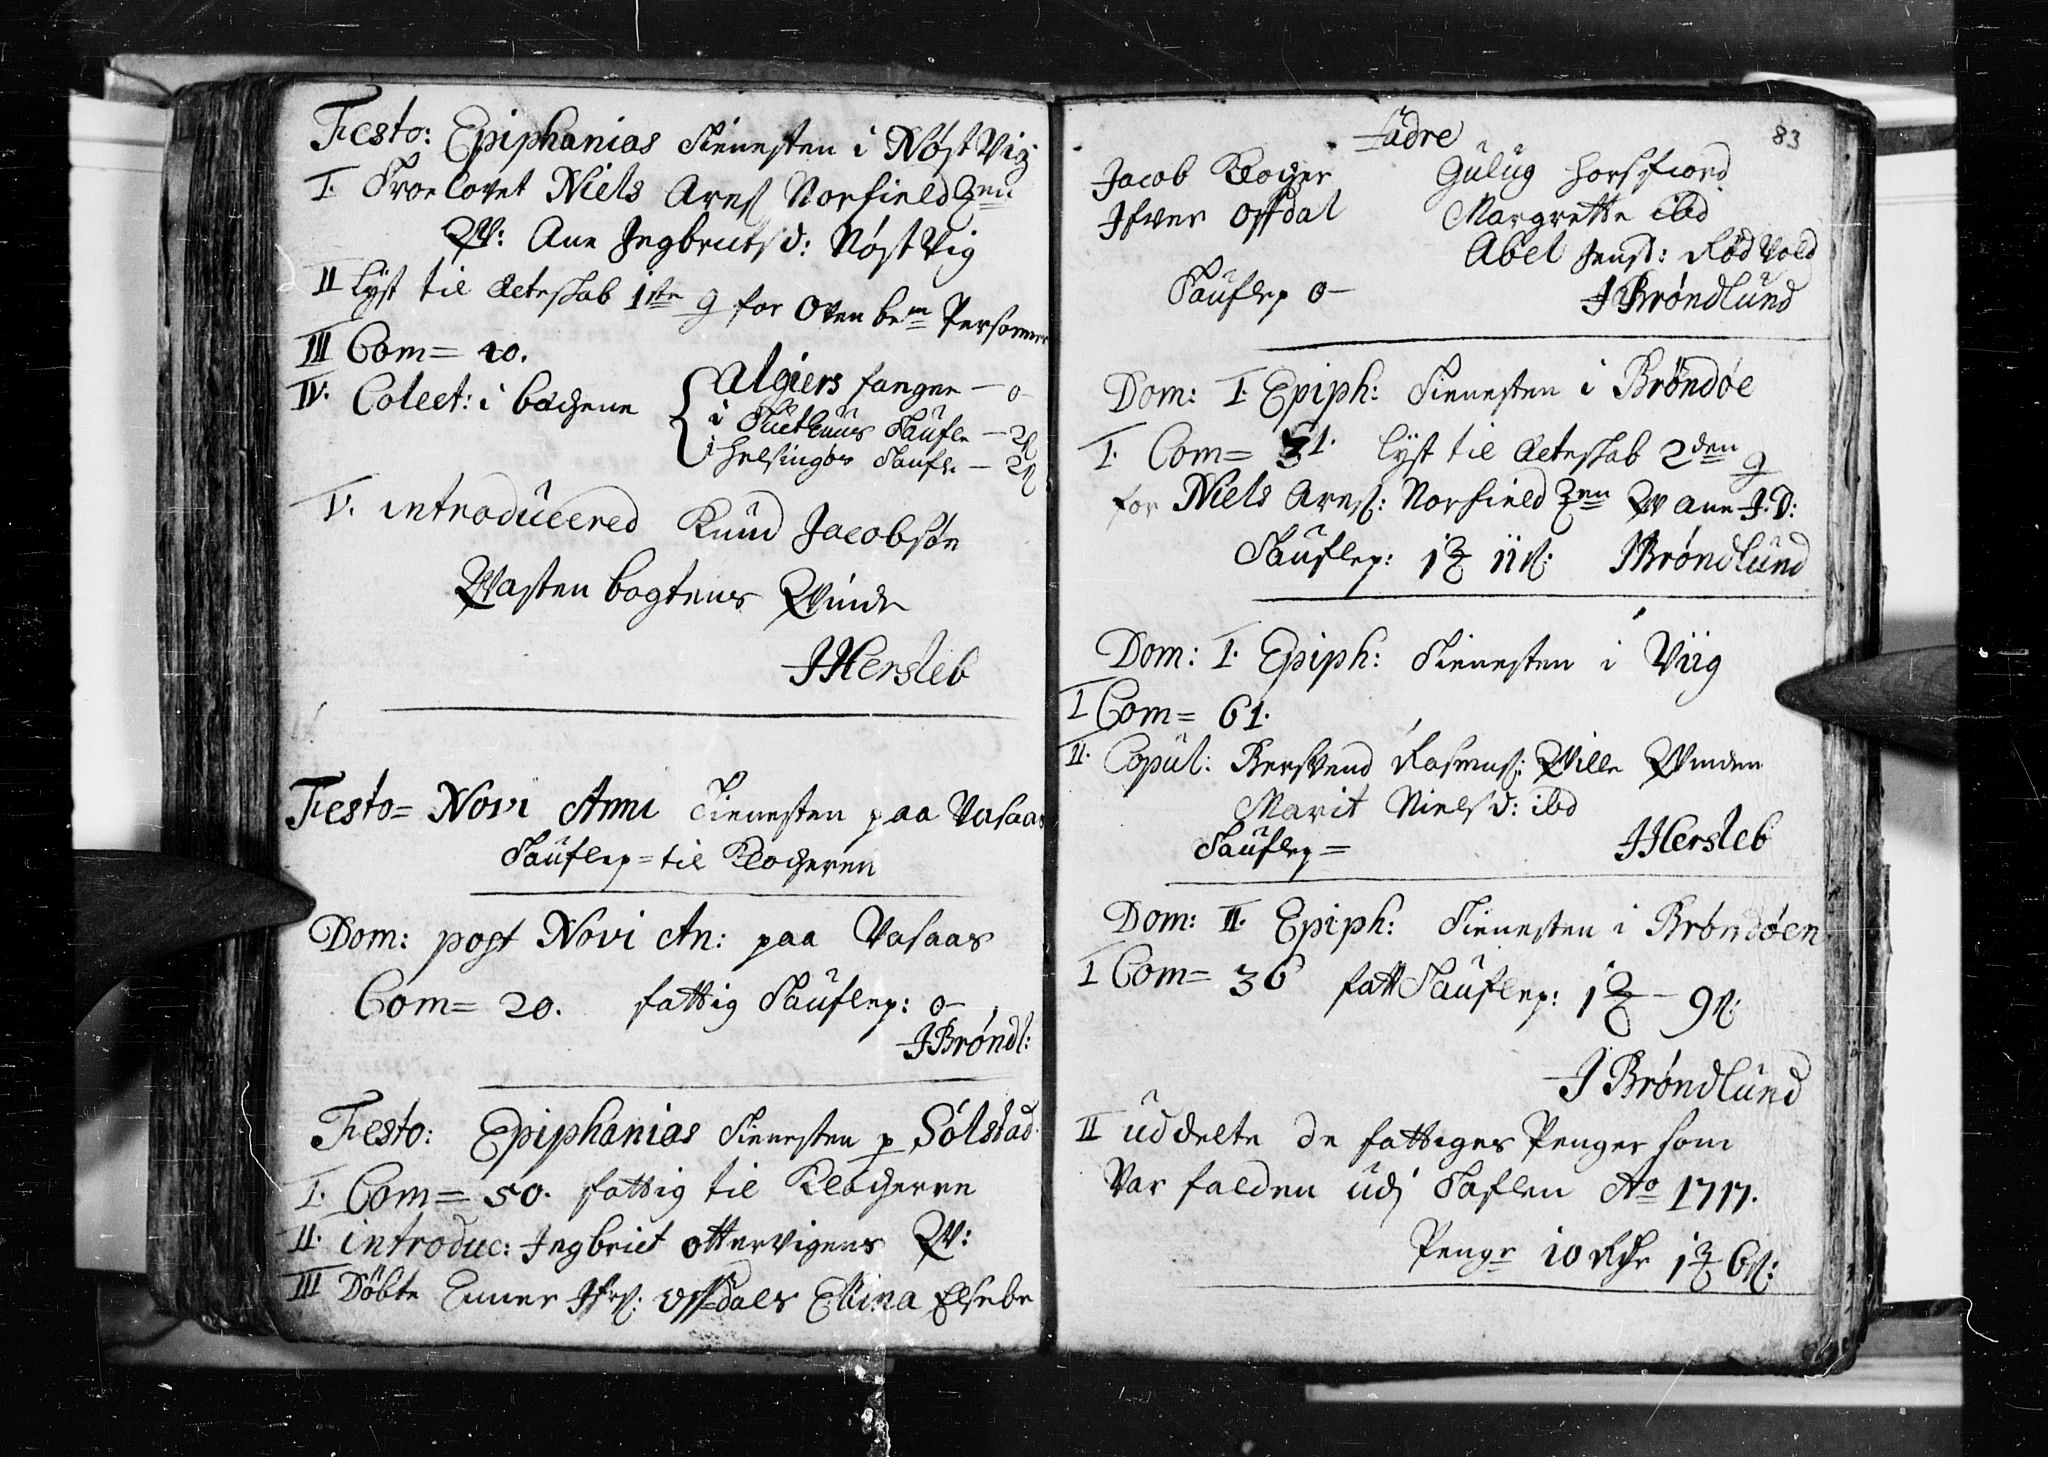 Festo: Epiphanias Tienesten i NøstVig
I. Troelovet Niels Arnss Norfield zen
W: Ane Ingbretsd: NøstVig
II lyst til Ecteskab 1ste g for Oven bem Personner
III Com= 40.
IV. Colect: i bøchene Algiers fanger – 0–
i Tucthuus Taufle – 2ß
i Helsingør Taufle – 2ß
V. introduceered Knud Jacobsøn
Wastenbogtens Qvinde
JHersleb
Festo= Novi Anni Tienesten paa Vasaas
Tauflep= til Klocheren
Dom: post Novi An: paa Vasaas
Com= 20. fattig Tauflep: 0–
JBrøndl:
Festo: Epiphanias Tienesten p Sølstad
I. Com= 50. fattig til Klocheren
II. introduc: Ingbrict Ottervigens Q:
III Døbte Ifrs: Offdals Ellina Elsebe
83
Fadre
Jacob Klocher Gulug Horsfiord
Ifver Offdal Margrette ibd
Abel Jensd: RødVold
Tauflep 0– JBrøndlund
Dom: I. Epiph: Tienesten i Brøndøe
I. Com= 31. lyst til Ecteskab 2den g
for Niels Arnss: Norfield zen W Ane J:D:
Tauflep: 1 11ß: JBrøndlund
Dom: I. Epiph: Tienesten i Viig
I Com= 61.
II. Copul: BersVend Rasmuss: Ville Vinden
Marit Nielsd: ibd
Tauflep= JHersleb
Dom: II. Epiph: Tienesten i Brøndøen
I Com= 36 fatt Tauflep: 1 – 9ß:
JBrøndlund
II uddelte de fattiges Penger som
Var falden udj Taflen Ao 1717.
Penge 10 Rdr 1 6ß: